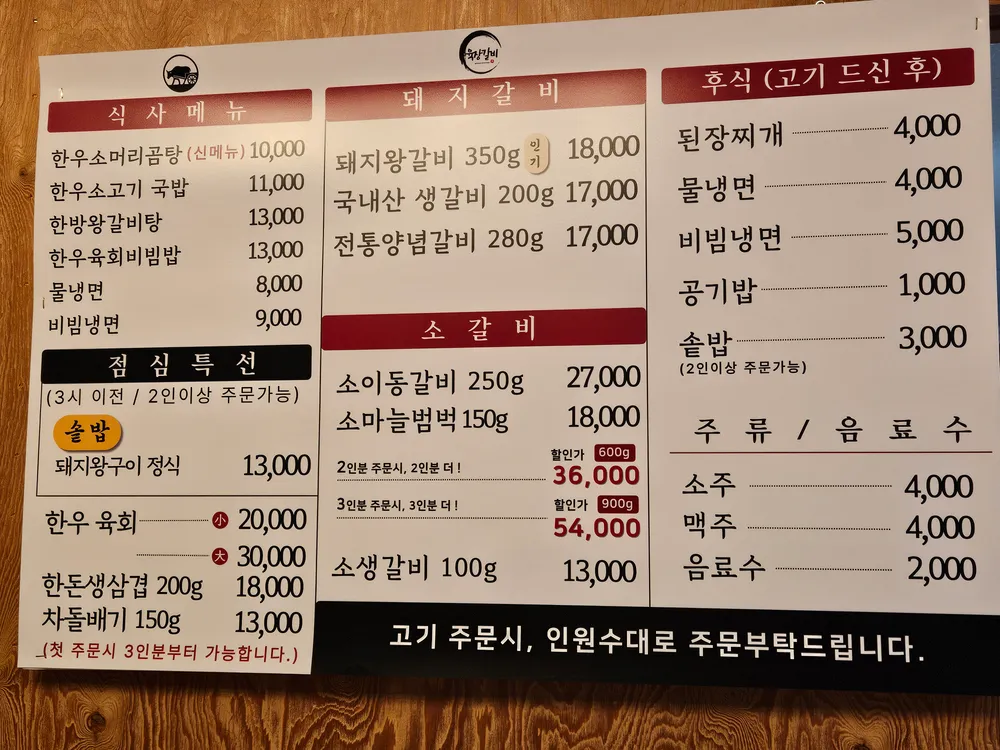 육장갈비
식사메뉴
한우소머리곰탕 (신메뉴) 10,000
한우소고기 국밥 11,000
한방왕갈비탕 13,000
한우육회비빔밥 13,000
물냉면 8,000
비빔냉면 9,000
점심특선
(3시 이전 / 2인이상 주문가능)
솥밥
돼지왕구이 정식 13,000
한우 육회 小 20,000
大 30,000
한돈생삼겹 200g 18,000
차돌배기 150g 13,000
(첫 주문시 3인분부터 가능합니다.)
돼지갈비
돼지왕갈비 350g 인기 18,000
국내산 생갈비 200g 17,000
전통양념갈비 280g 17,000
소갈비
소이동갈비 250g 27,000
소마늘범벅 150g 18,000
할인가 600g
2인분 주문시, 2인분 더 ! 36,000
3인분 주문시, 3인분 더 ! 할인가 900g
54,000
소생갈비 100g 13,000
후식 (고기 드신 후)
된장찌개 4,000
물냉면 4,000
비빔냉면 5,000
공기밥 1,000
솥밥 3,000
(2인이상 주문가능)
주류 / 음료수
소주 4,000
맥주 4,000
음료수 2,000
고기 주문시, 인원수대로 주문부탁드립니다.